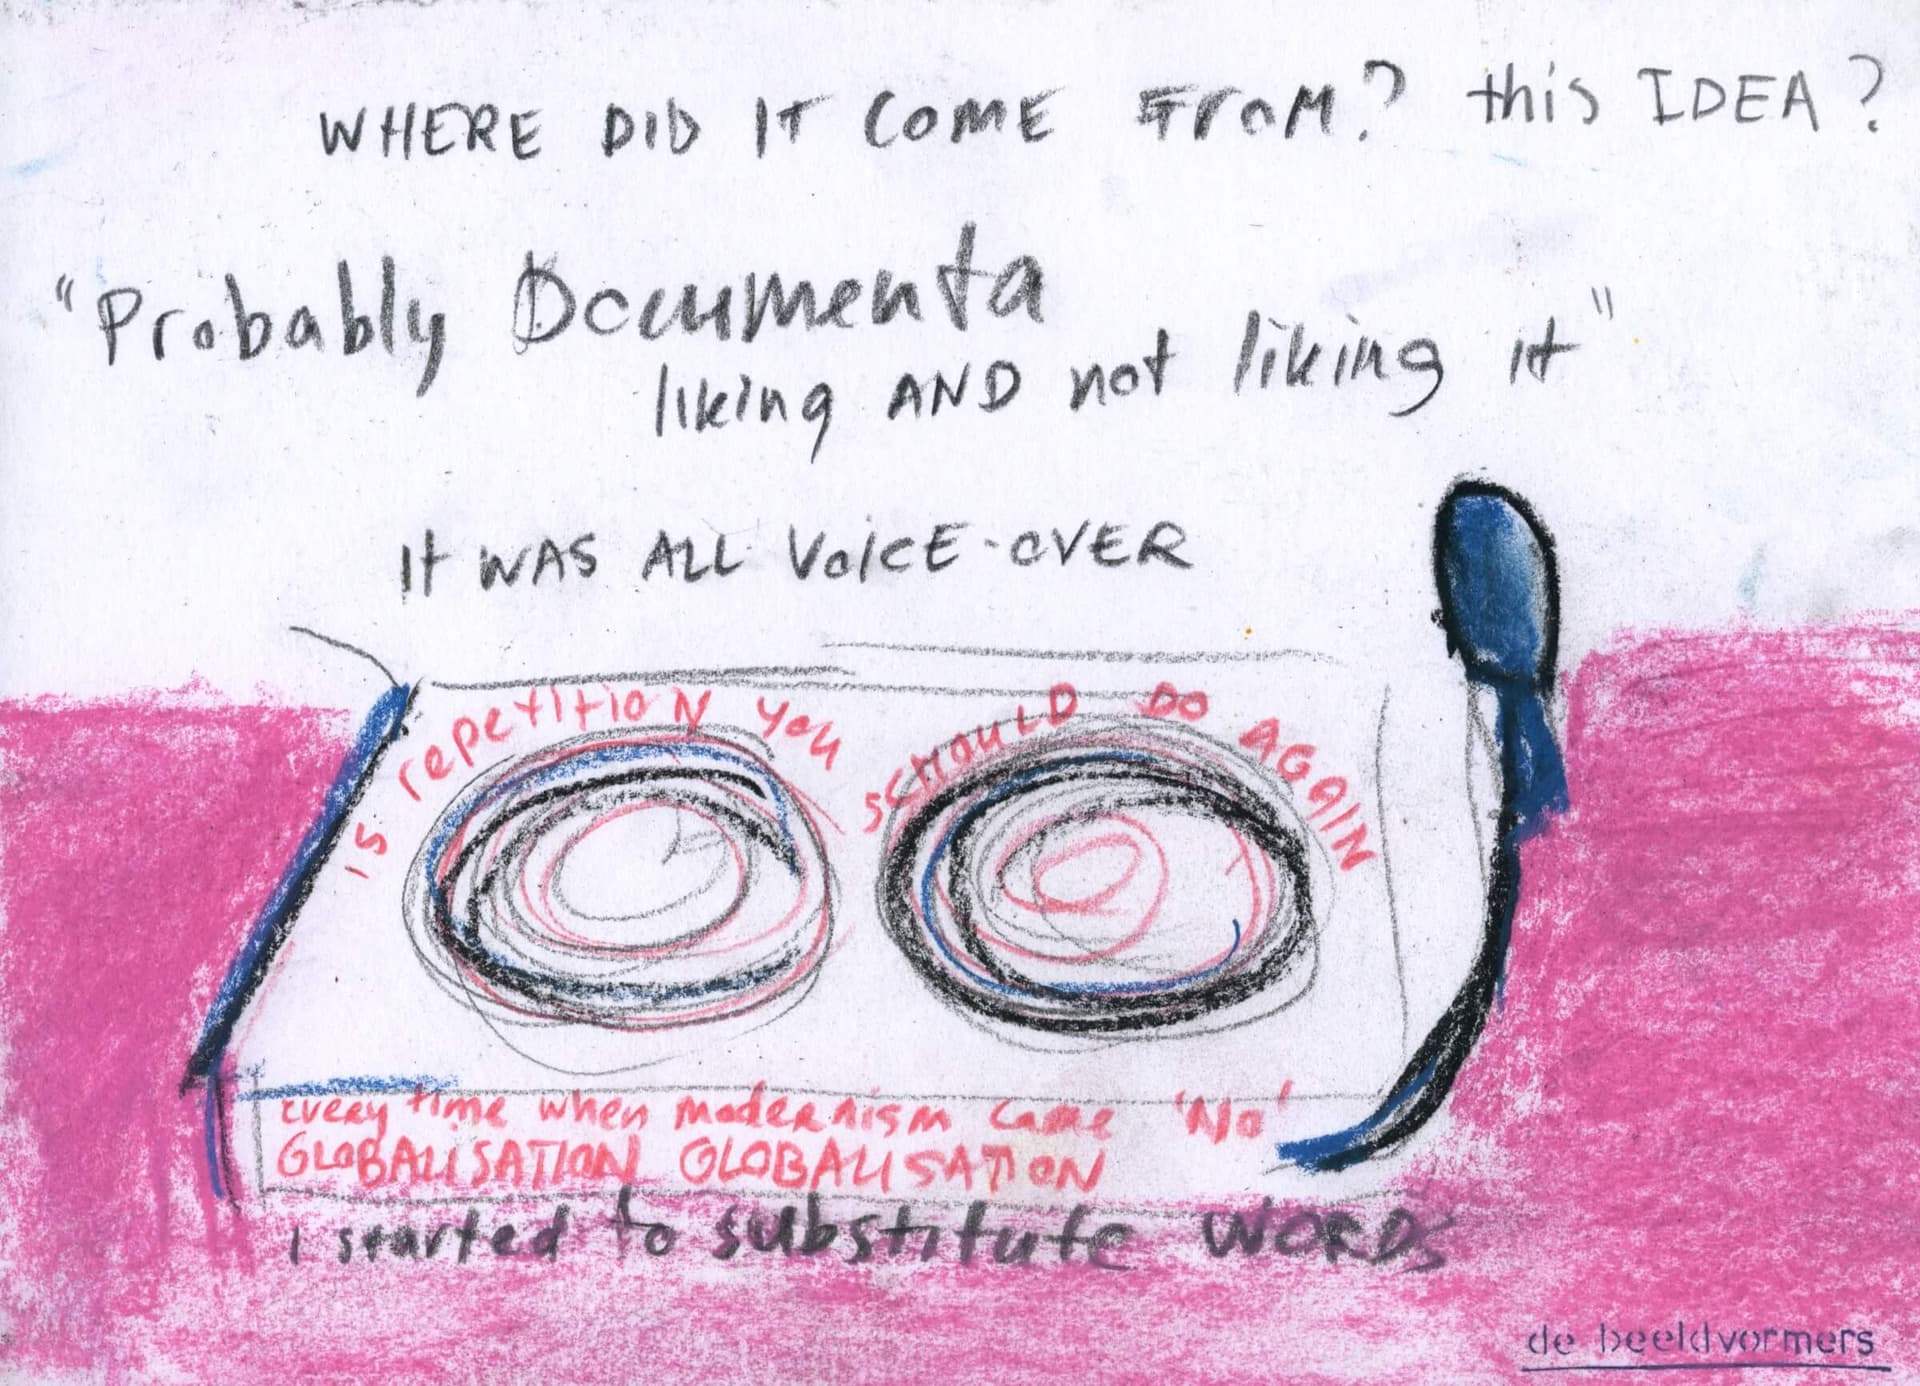 WHERE DID IT COME FROM? this IDEA?
"Probably Documenta
liking AND not liking it"
It WAS ALL VOICE-OVER
IS repetition you SCHOULD DO AGAIN
every time when modernism came 'No'
GLOBALISATION GLOBALISATION
I started to substitute WORDS
de beeldvormers